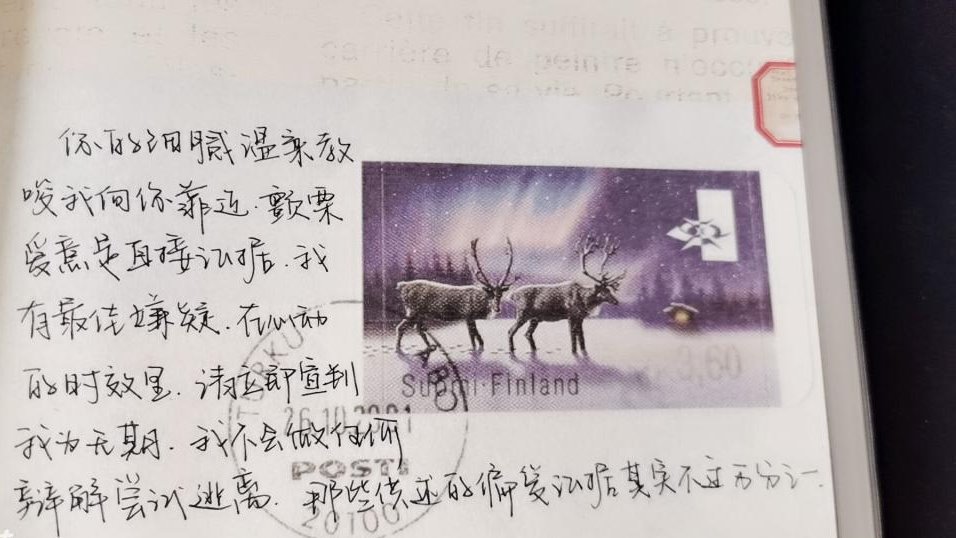 Cette fin suffirait à prouve
carrière de peintre n'occu
你的细腻温柔教
唆我向你靠近.颤栗
爱意是直接证据.我
有最佳嫌疑.在心动
的时效里.请立即宣判
我为无期.我不会做任何
辩解尝试逃离.那些供述的偏爱证据其实不过万分之一.
3,60
Suomi Finland
TURKU
ÅBO
26.10.2001
POSTI
20100